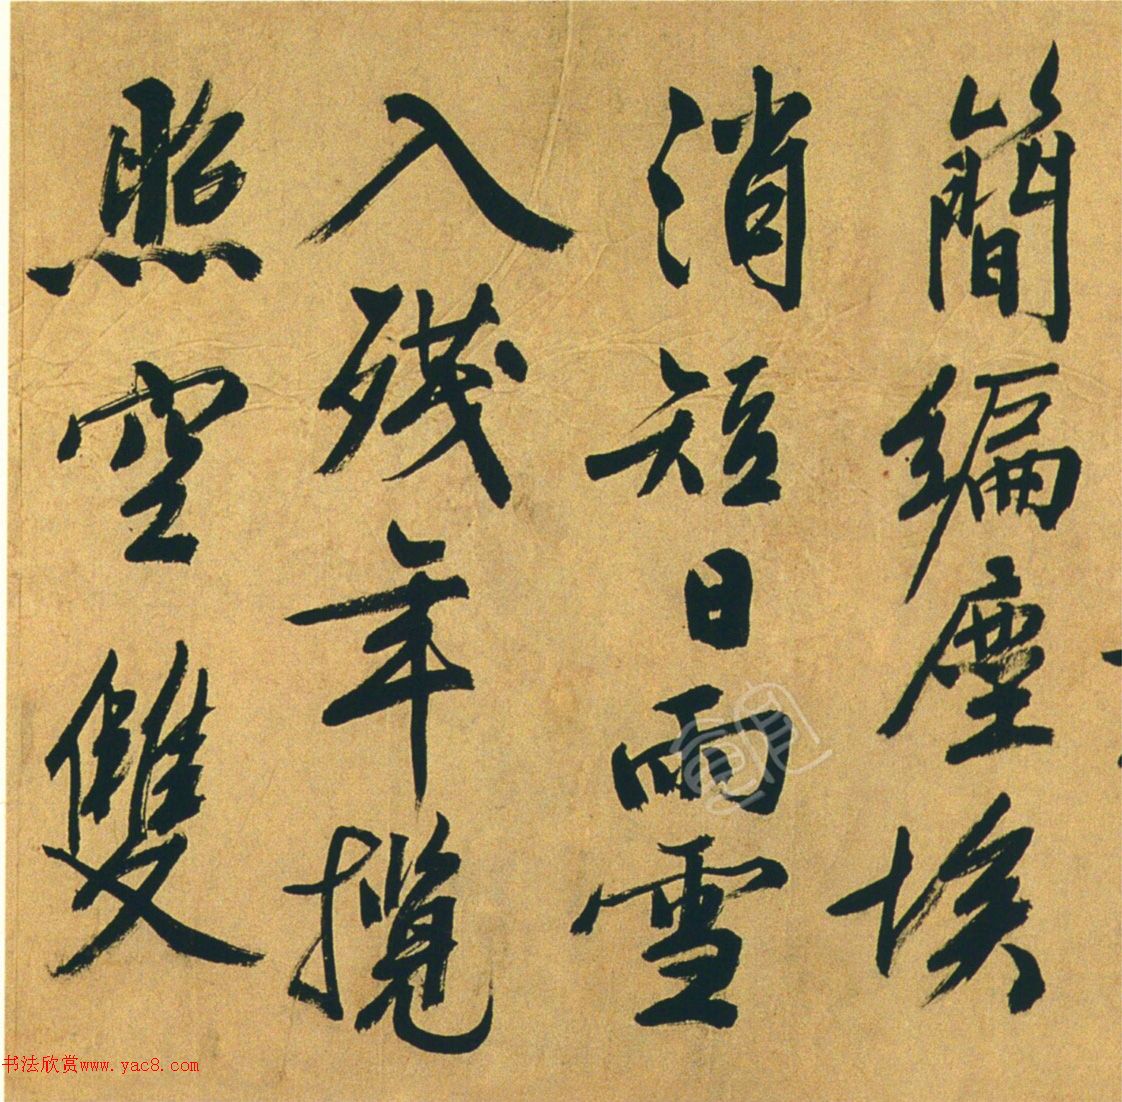 簡編塵埃
消短日雨雪
入殘年攬
照空雙
书法欣赏www.yac8.com